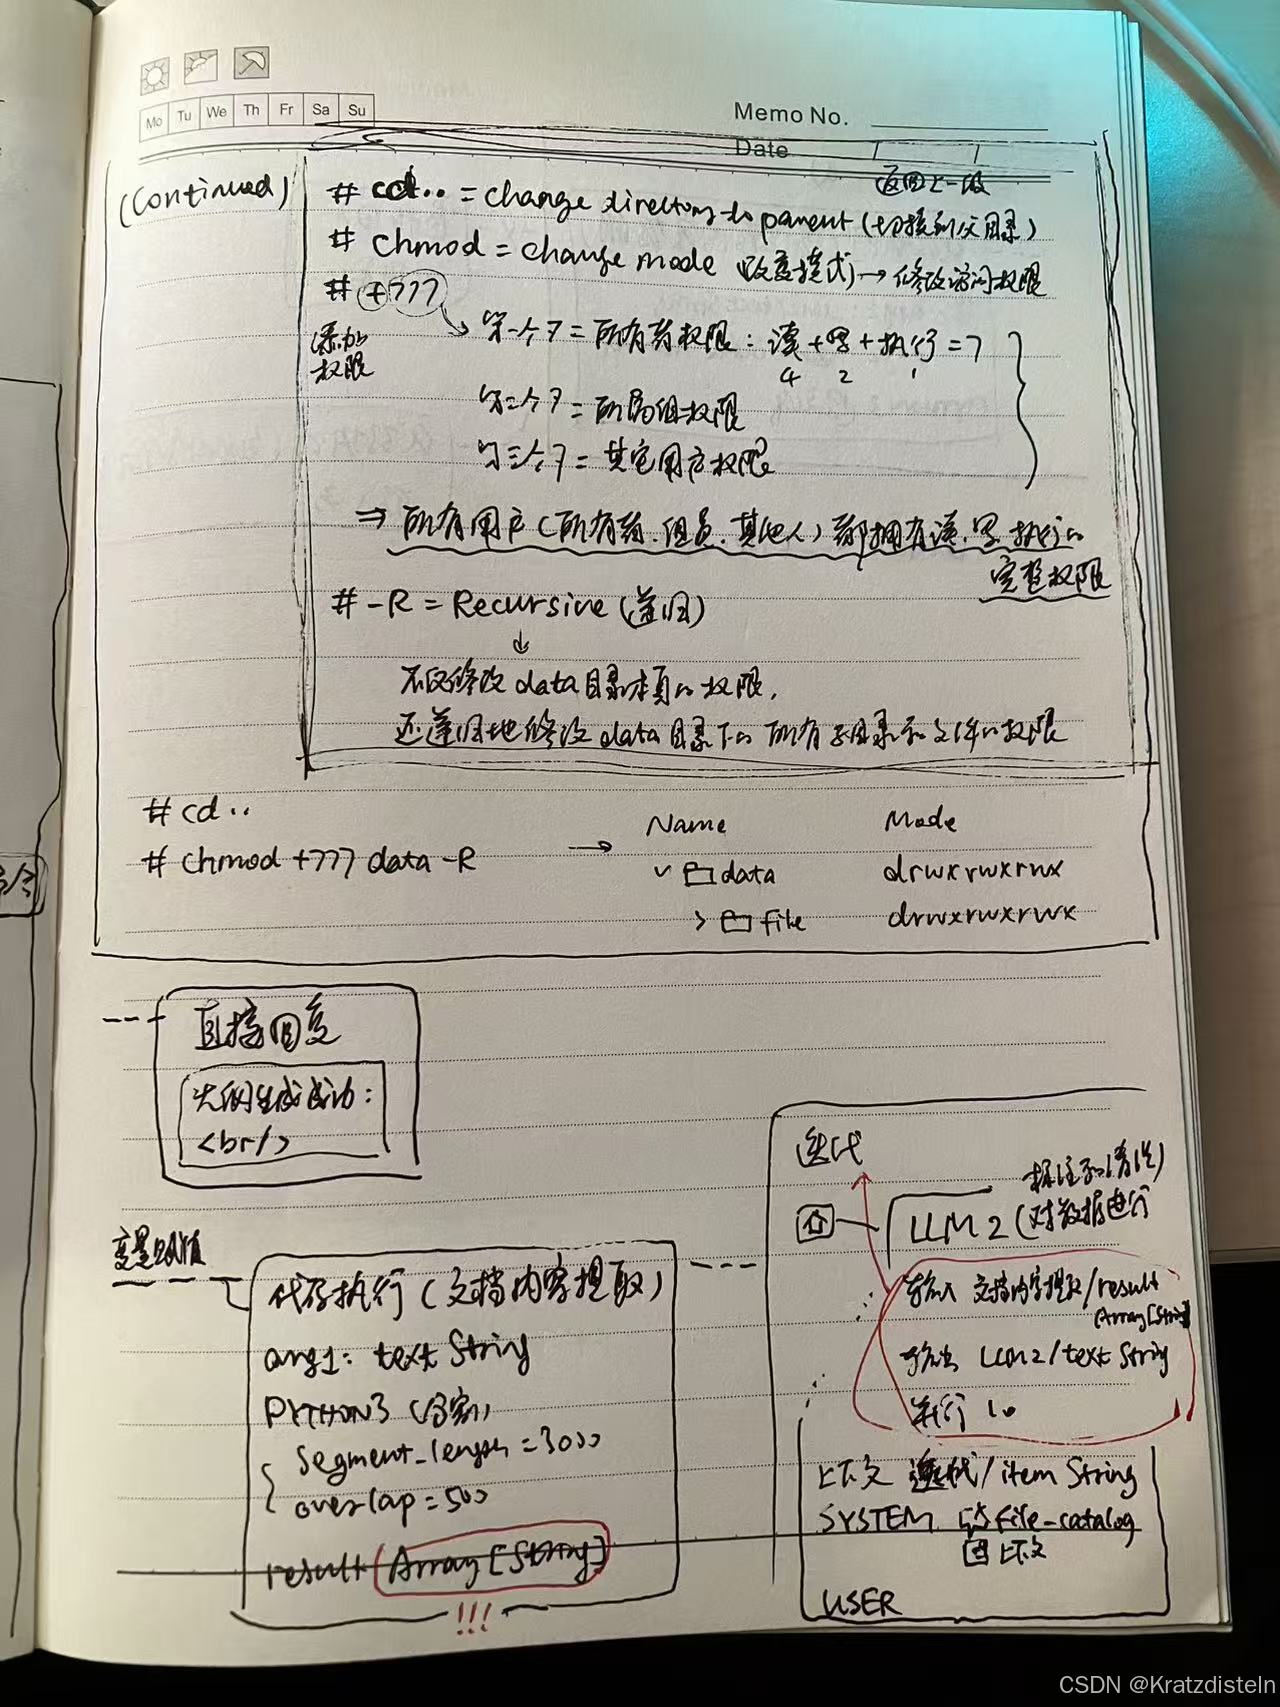 Mo Tu We Th Fr Sa Su
Memo No.
Date
(Continued)
返回上一级
# cd.. = change directory to parent (切换到父目录)
# chmod = change mode (改变模式) → 修改访问权限
# +777
添加
权限
第一个7 = 所有者权限: 读+写+执行=7
4 2 1
第二个7 = 所属组权限
第三个7 = 其它用户权限
⇒ 所有用户(所有者.组员.其他人)都拥有读.写.执行的
完整权限
# -R = Recursive (递归)
↓
不仅修改data目录本身的权限,
还递归地修改data目录下的所有子目录和文件的权限
# cd..
# chmod +777 data -R → Name Mode
data drwxrwxrwx
> file drwxrwxrwx
直接回复
大纲生成成功:
<br/>
变量赋值
代码执行(文档内容提取)
arg1: text String
PYTHON3 (分割)
segment_length = 3000
overlap = 500
result Array[String]
!!!
迭代
标注和清洗)
LLM2 (对数据进行
输入 文档内容提取/result
Array[String]
输出 LLM2/text String
并行 10
上下文 迭代/item String
SYSTEM file-catalog
上下文
USER
CSDN @Kratzdisteln